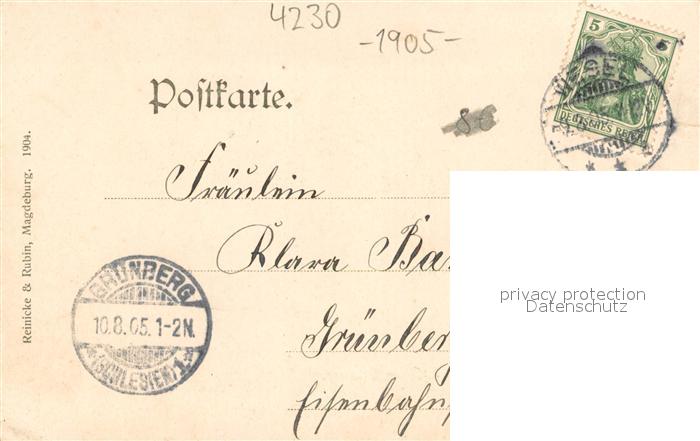 4230
-1905-
5
DEUTSCHES REICH
Postkarte.
Fräulein
Klara Ba
Grünber
Eisenbahn
Reinicke & Rubin, Magdeburg. 1904.
GRÜNBERG
10.8.05.1-2N.
*(SCHLESIEN)1*
privacy protection
Datenschutz